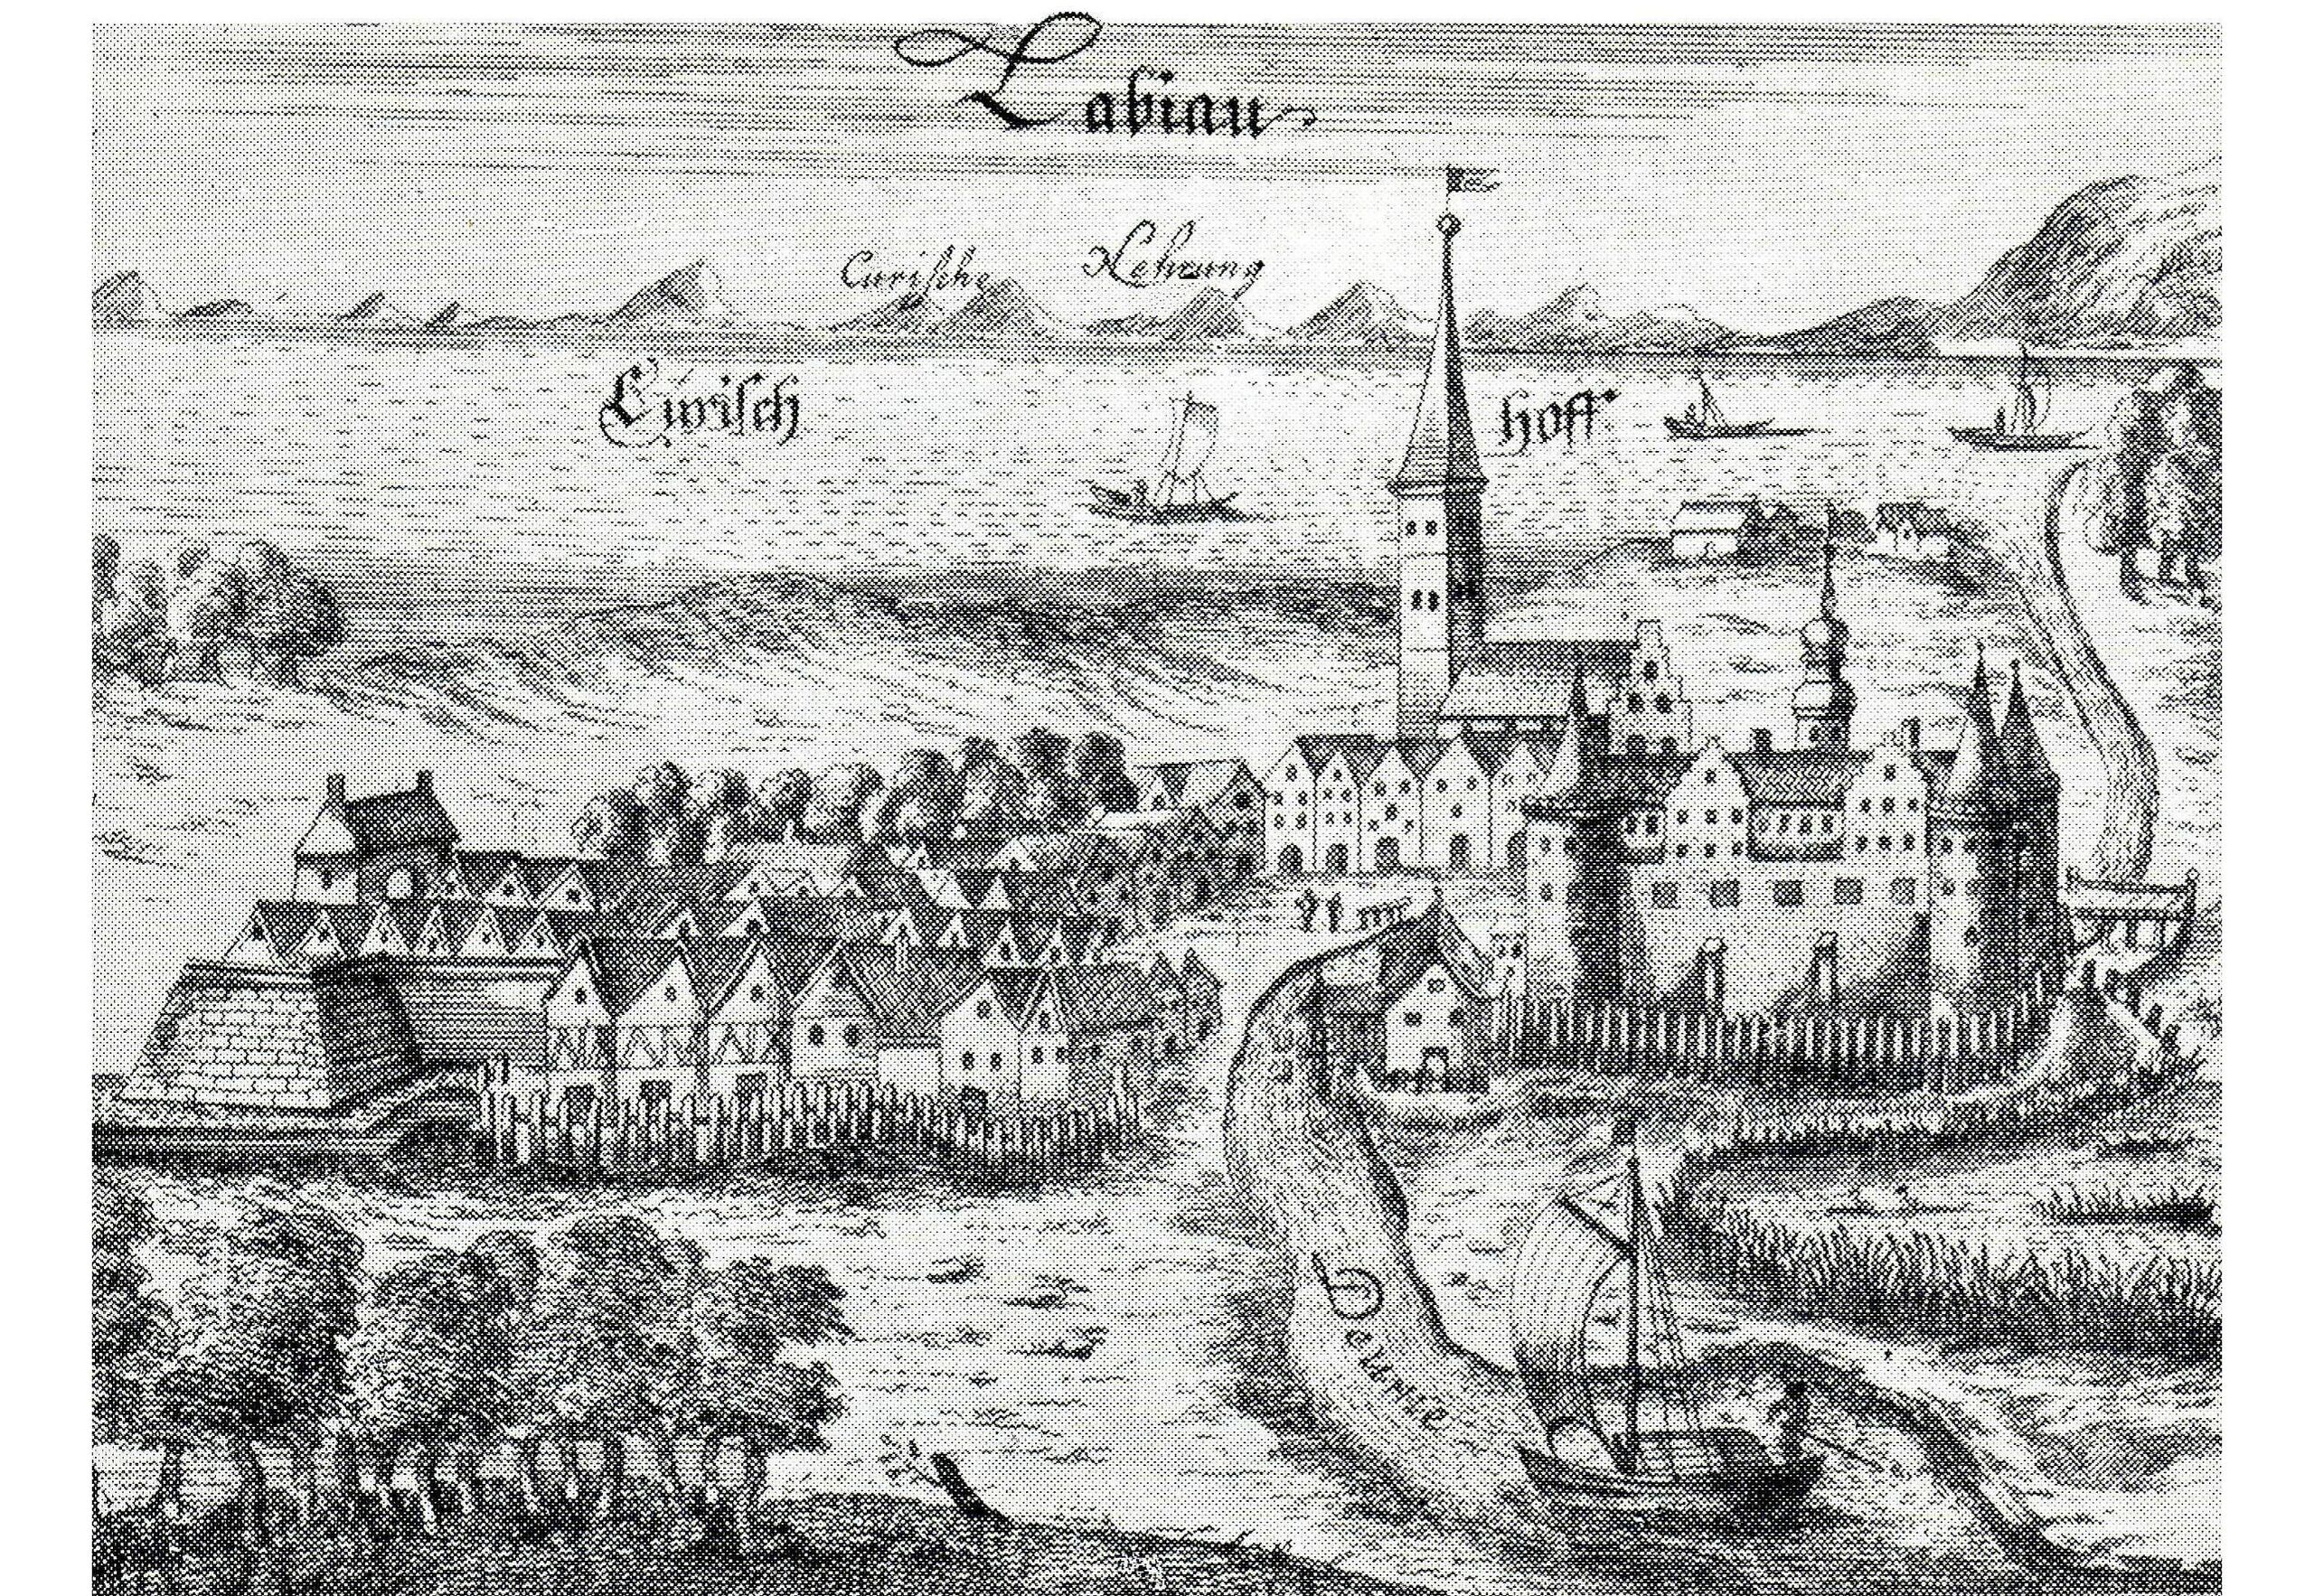 Labiau
Curische Nehrung
Curisch Hoff
Deume